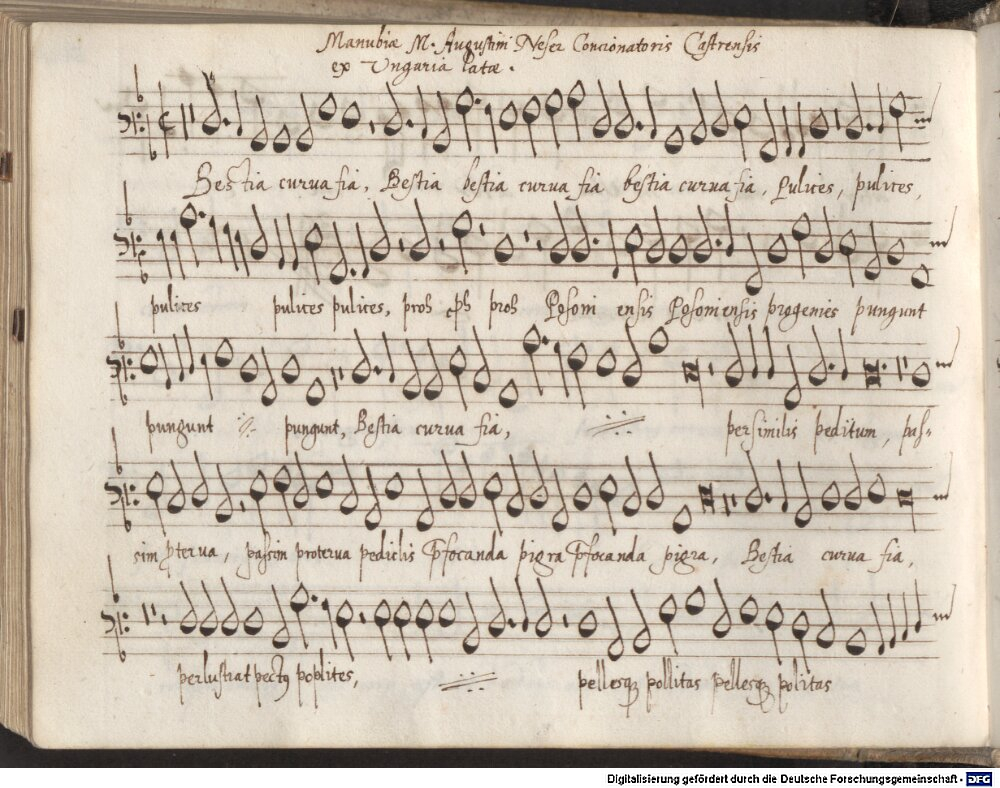 Manubiæ M. Augustini Neser Concionatoris Castrensis
ex Ungaria latæ.
Bestia curvafia, Bestia bestia curva fia bestia curvafia, Pulices, pulices,
pulices pulices pulices, proh ꝓh proh Posoni ensis Posoniensis progenies pungunt
pungunt pungunt, Bestia curva fia, persimilis peditum, pas-
sim ꝓterva, passim proterva pediclis Ꝓfocanda pigra Ꝓfocanda pigra, Bestia curva fia,
perlustrat pectꝰ poplites, pellesqꝫ pollitas pellesqꝫ politas
Digitalisierung gefördert durch die Deutsche Forschungsgemeinschaft - DFG